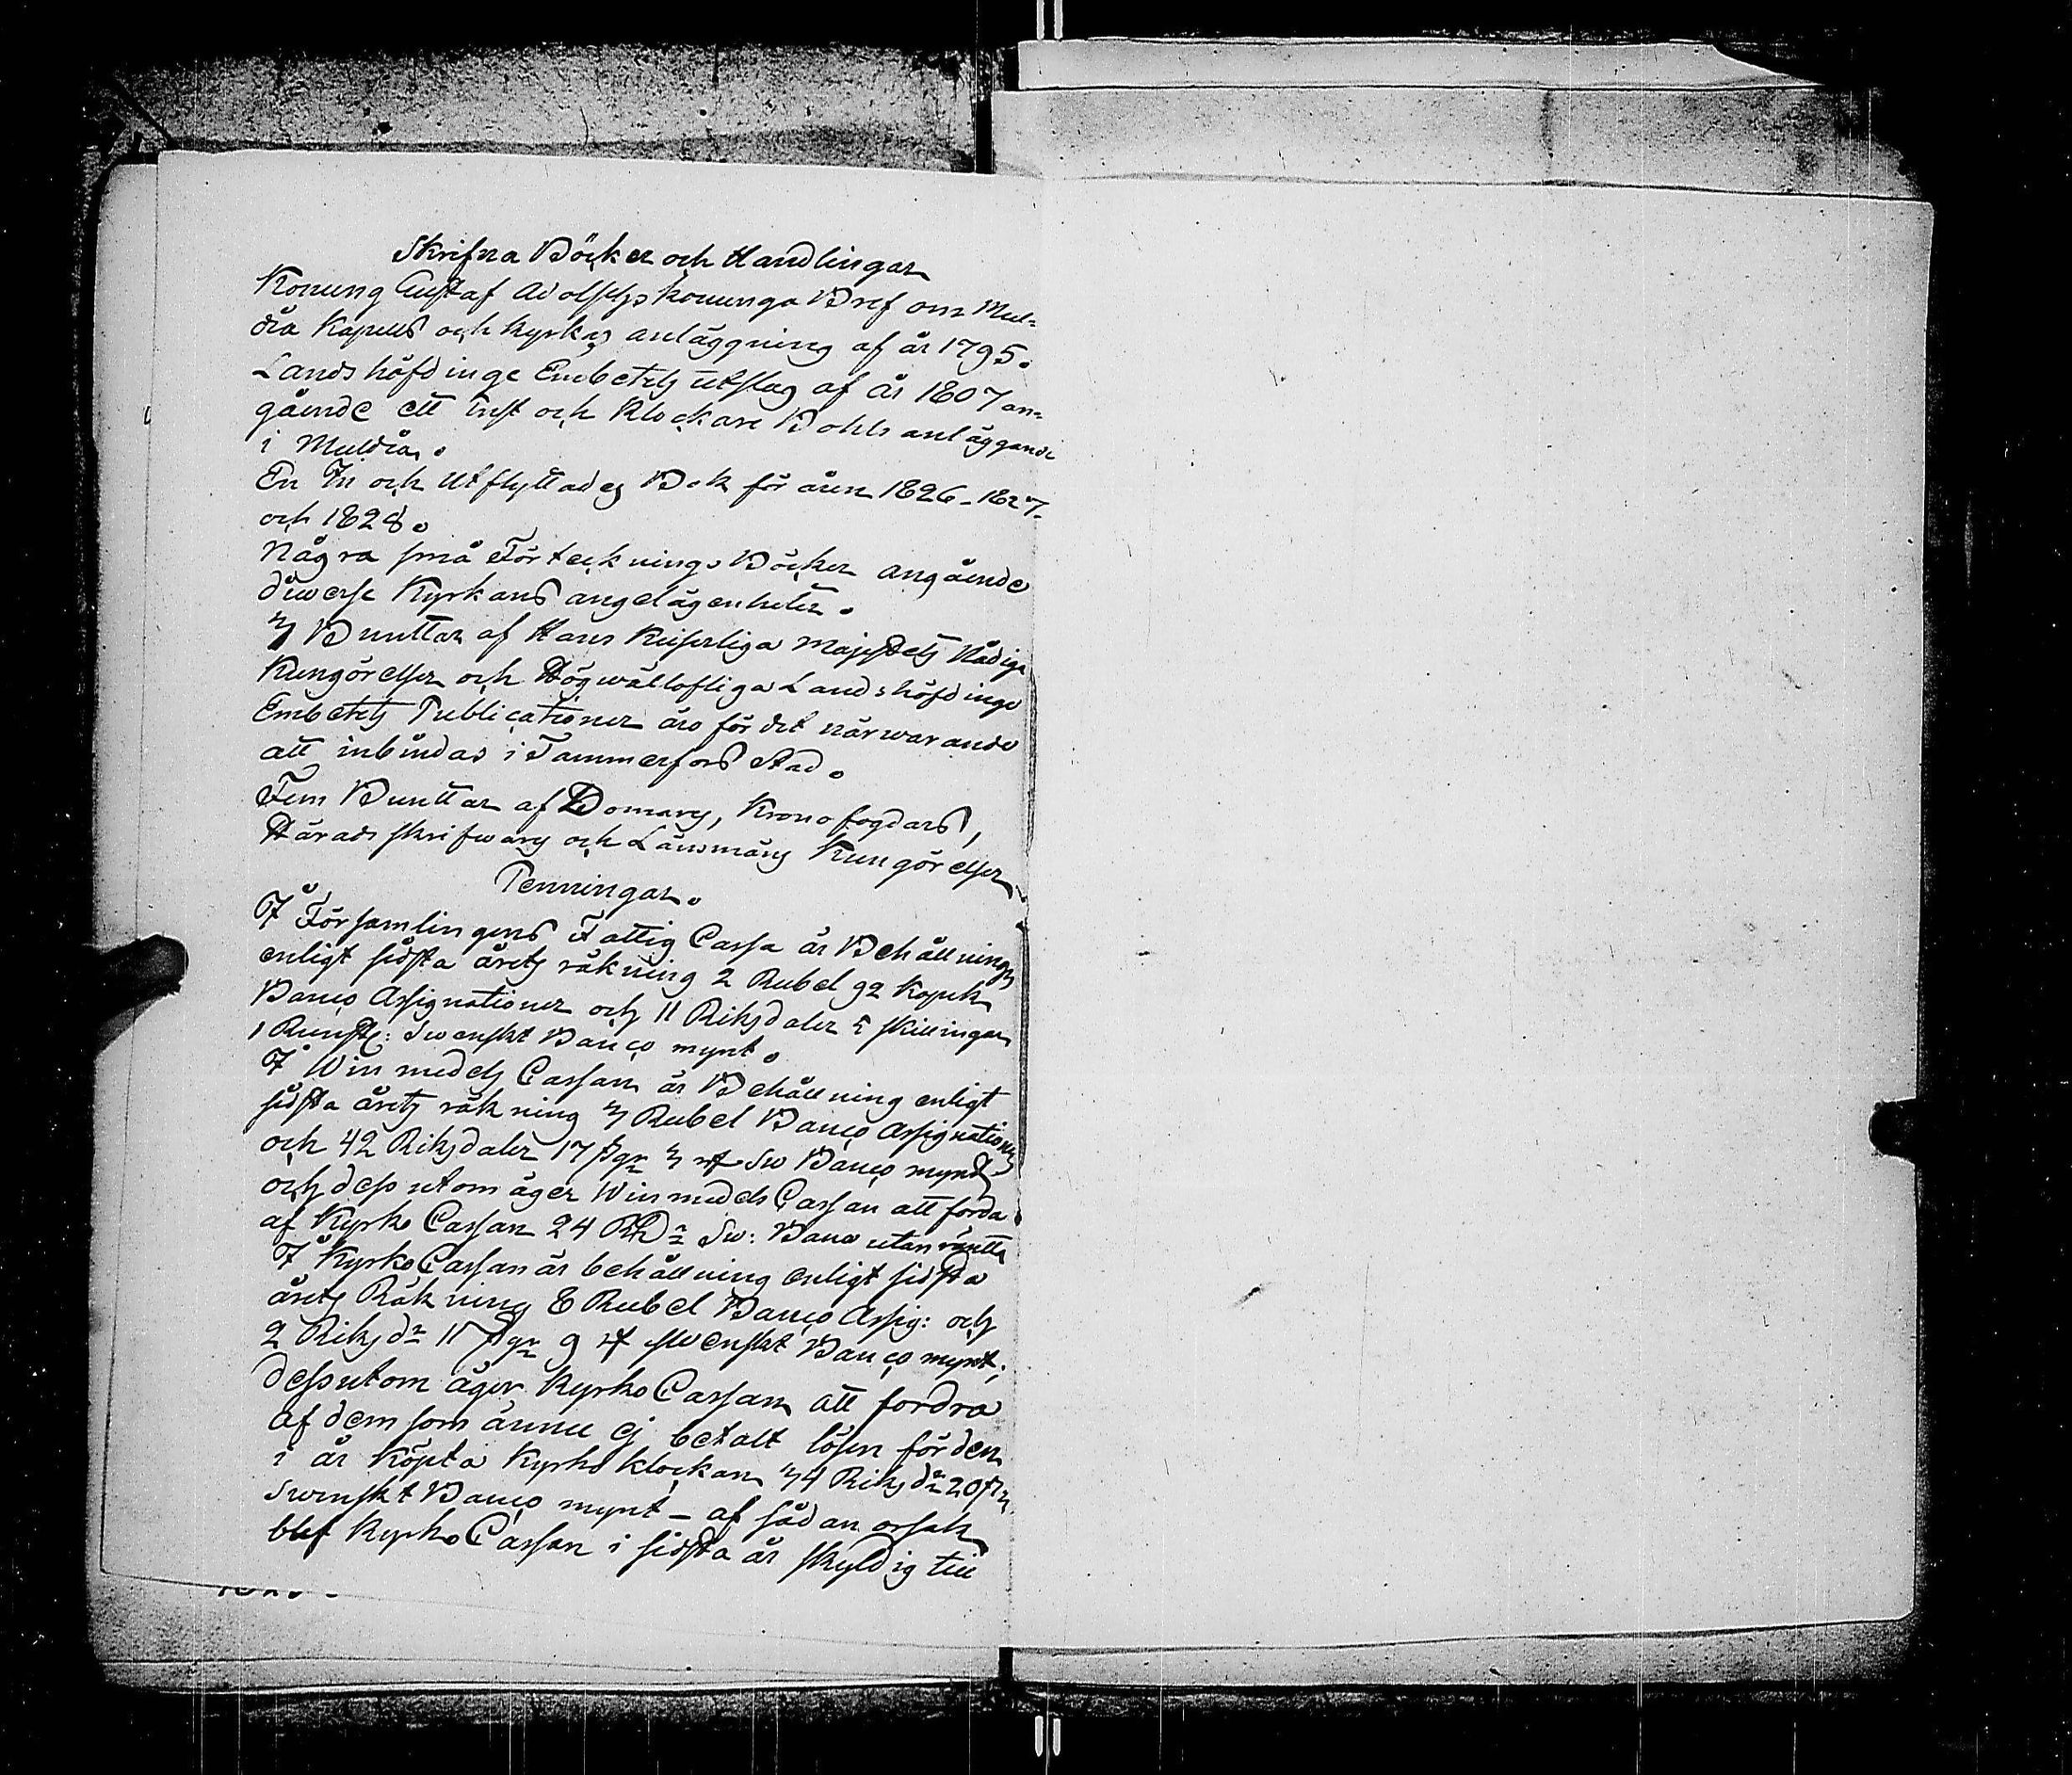 Skrifna Böcker och Handlingar
Konung Gustaf Adolphs konunga Bref om Mul-
dia Kapells och kyrkas anläggning af år 1795.
Landshöfdinge Embetets utslag af år 1807 an-
gående ett Inst och Klockare Bohls anläggande
i Muldia.
En In och Utflyttades Bok för åren 1826-1827-
och 1828.
Några små Förtecknings Böcker angående
diverse Kyrkans angelägenheter.
3 Bunttar af Hans Keiserliga Majestets Nådiga
Kungörelser och Högwällofliga Landshöfdinge
Embetets Publicationer äro för det närwarande
att inbindas i Tammerfors stad.
Fem Bunttar af Domares, Kronofogdars,
Häradsskrifwares och Länsmans Kungörelser
Penningar.
I Församlingens Fattig Cassa är Behållningen
enligt sidsta årets räkning 2 Rubel 92 Kopek
Banco Assignationer och 11 Riksdaler 5 skillingar
1 Runst: Swenskt Banco mynt.
I Winmedels Cassan är Behållning enligt
sidsta årets räkning 3 Rubel Banco Assignationer
och 42 Riksdaler 17 sgr 3 rst Sw Banco mynt
och dessutom äger Winmedels Cassan att fordra
af Kyrko Cassan 24 RDr Sw: Banco utan räntta
I Kyrko Cassan är behållning enligt sidsta
årets Räkning 8 Rubel Banco Assig: och
2 Riksdr 11 sgr 9 rst swenskt Banco mynt;
dessutom äger Kyrko Cassan att fordra
af dem som ännu ej betalt lösen för den
i år köpta Kyrko klockan 34 Riksdr 20 s
Swenskt Banco mynt - af sådan orsak
blef Kyrko Cassan i sidsta år skyldig till